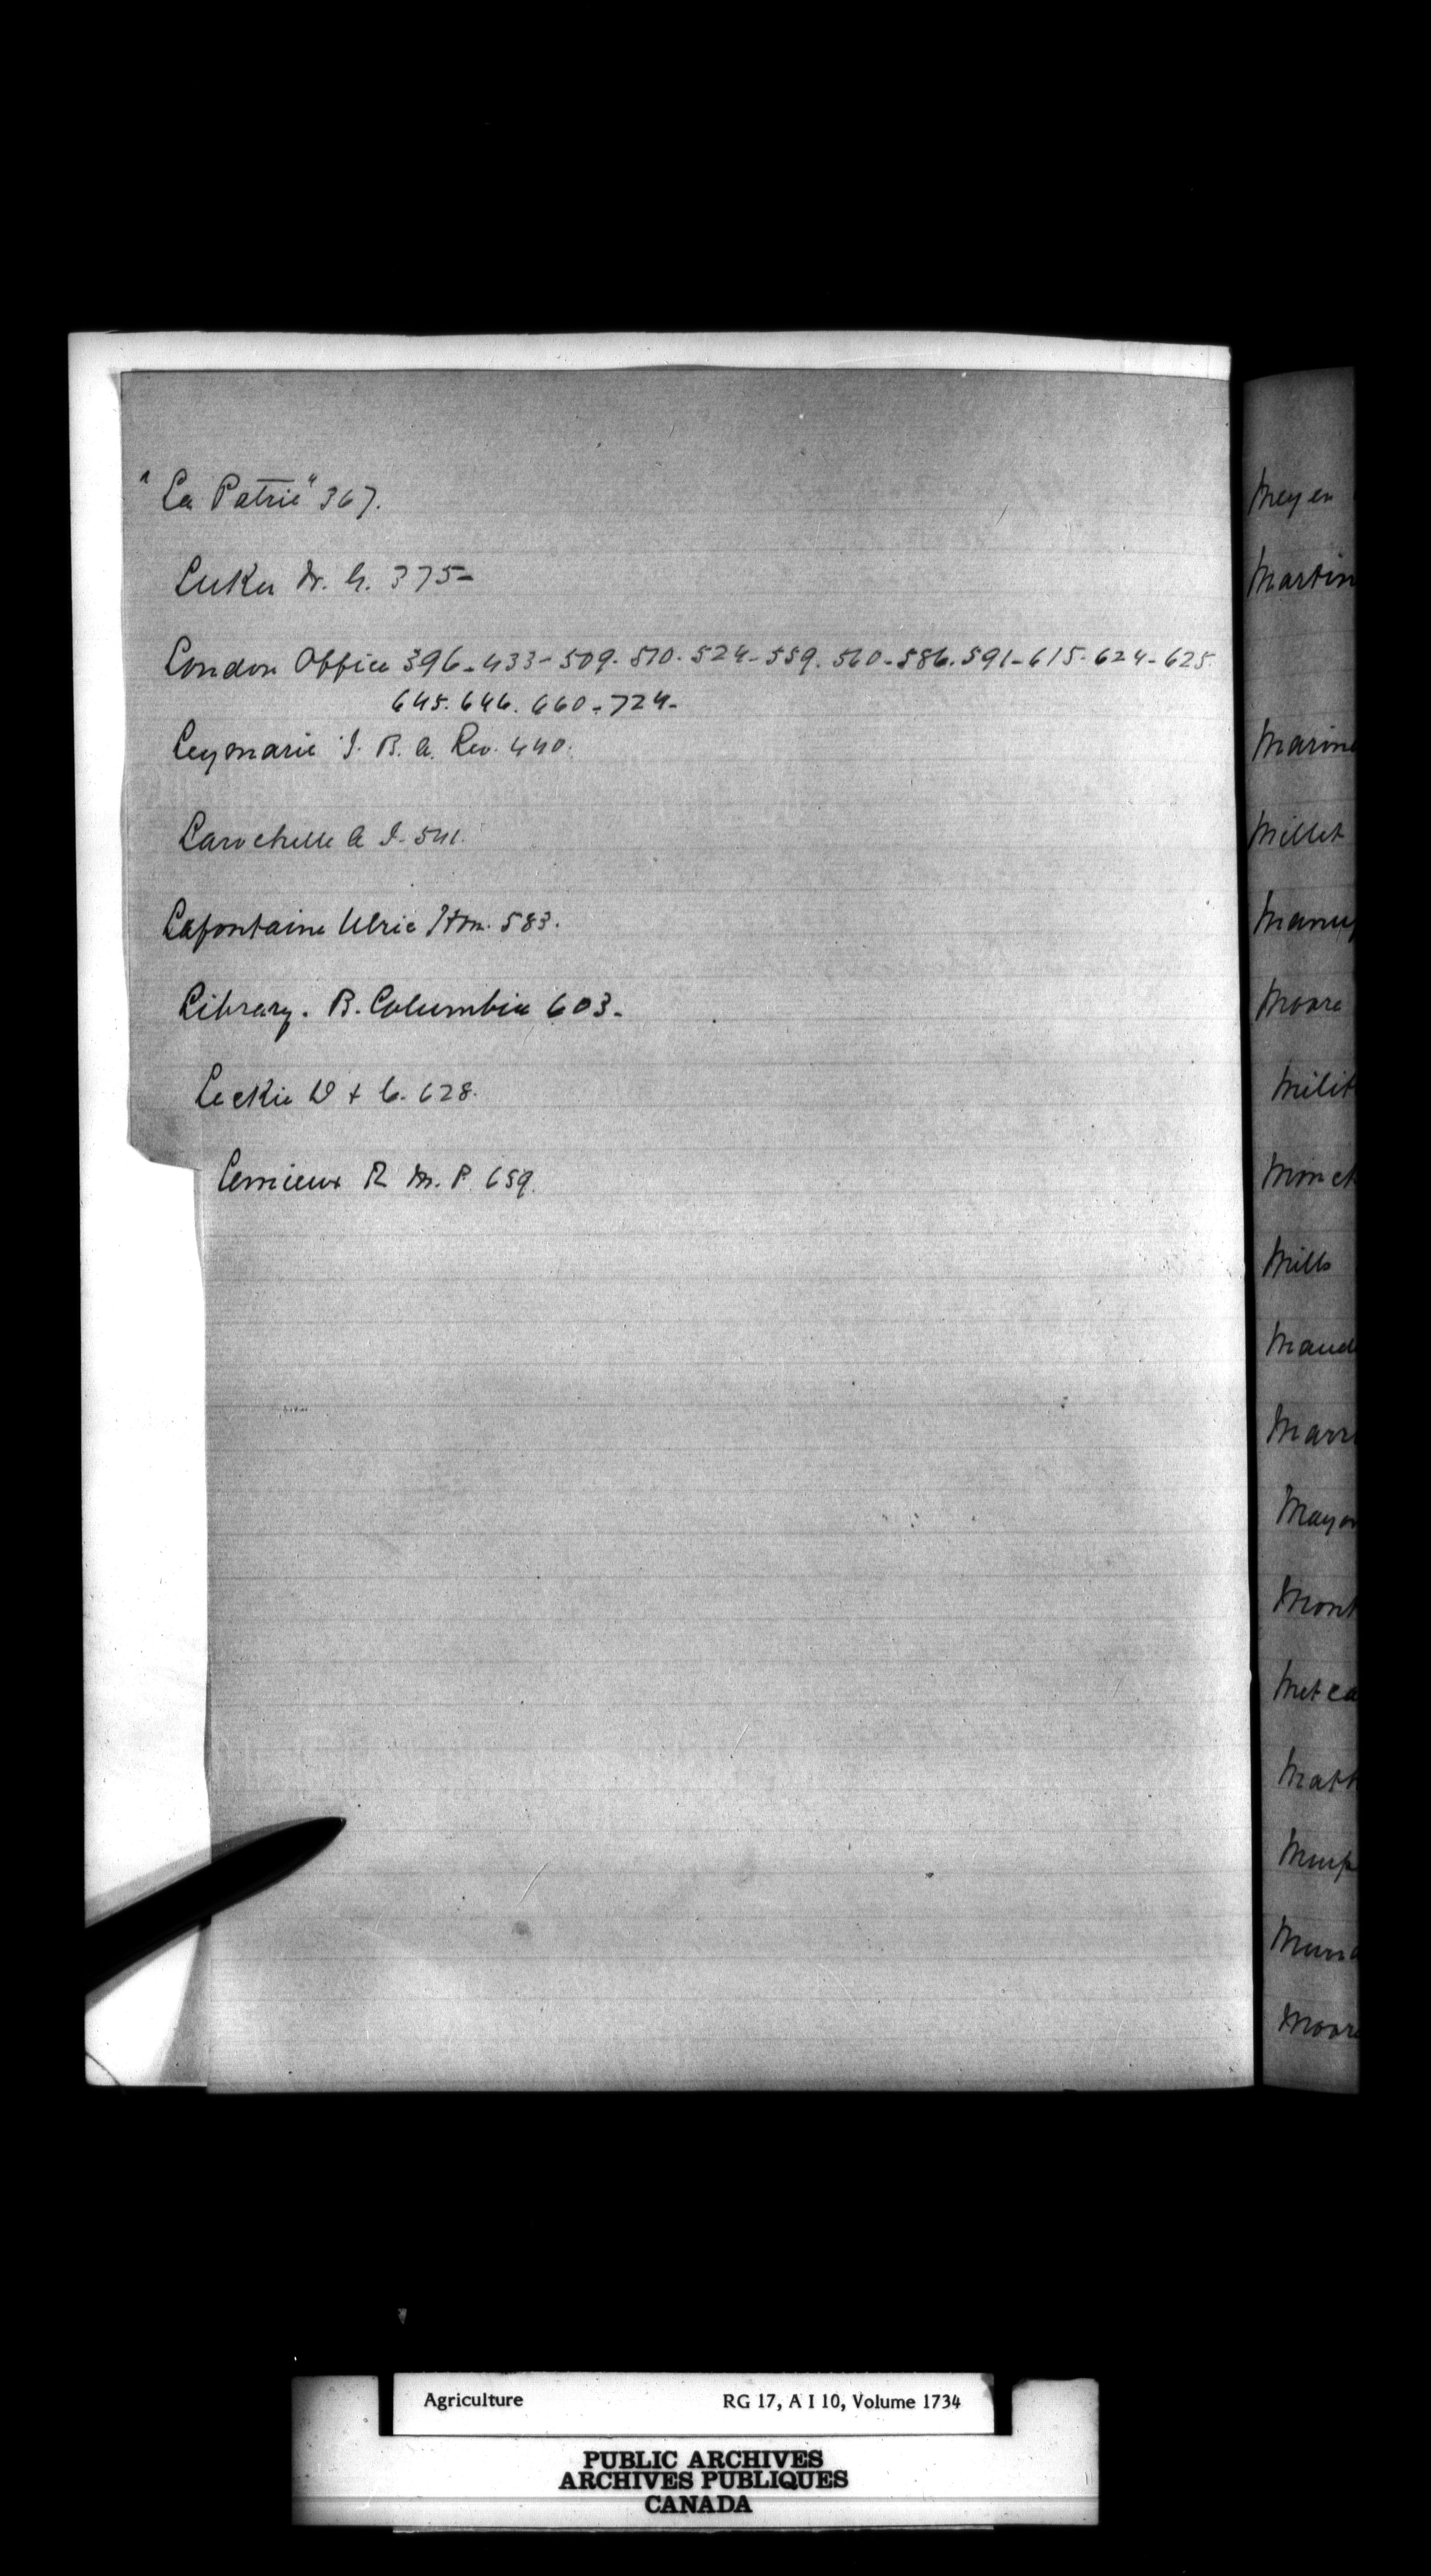 "La Patrie" 367.
Luker Dr. G. 375-
London Office 396-433-509-510-524-559.560-586.591-615-624-625.
645.646.660-724-
Leymarie J. B. A. Rev. 440.
Larochelle A I. 541.
Lafontaine Ulric Hon. 583.
Library. B. Columbia 603-
Leckie W & G. 628.
Lemieux R M.P. 659.
Meyer
Martin
Marine
Millet
Manuf
Moore
Milit
Mills
Maud
Marri
Mayor
Mont
Metca
Matt
Moore
Agriculture RG 17, A I 10, Volume 1734
PUBLIC ARCHIVES
ARCHIVES PUBLIQUES
CANADA